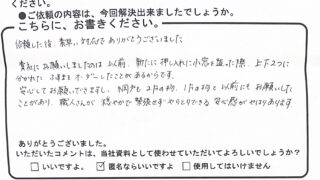 ください。
●ご依頼の内容は、今回解決出来ましたでしょうか。
こちらに、お書きください。
依頼した後、素早い対応で ありがとうございました
貴社にお願いしましたのは 以前、新たに押し入れに小窓を造った際、上下2つに
分かれた ふすまを オーダーしたことがあるからです。
安心してお願いできますし、網戸も2ヶ所の物、1ヶ所の物と 以前にもお願いした
ことがあり、職人さんが 穏やかで 緊張せずやりとりできる 安心感が やはりあります
ありがとうございました。
いただいたコメントは、当社資料として使わせていただいてよろしいでしょうか?
□ いいですよ。 ☑ 匿名ならいいですよ □ 使用してはいけません